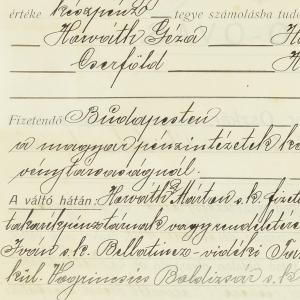 értéke készpénzb tegye számolásba tud
Horváth Géza H
Cserföld
Fizetendő Budapesten
a magyar pénzintézetek k
vénytársaságnál.
A váltó hátán: Horváth Márton s. k. fizet
takarékpénztárnak vagy rendeletére
Iván s. k. Bellatincz-vidéki Tak
kül. Vogrincsics Boldizsár s. k